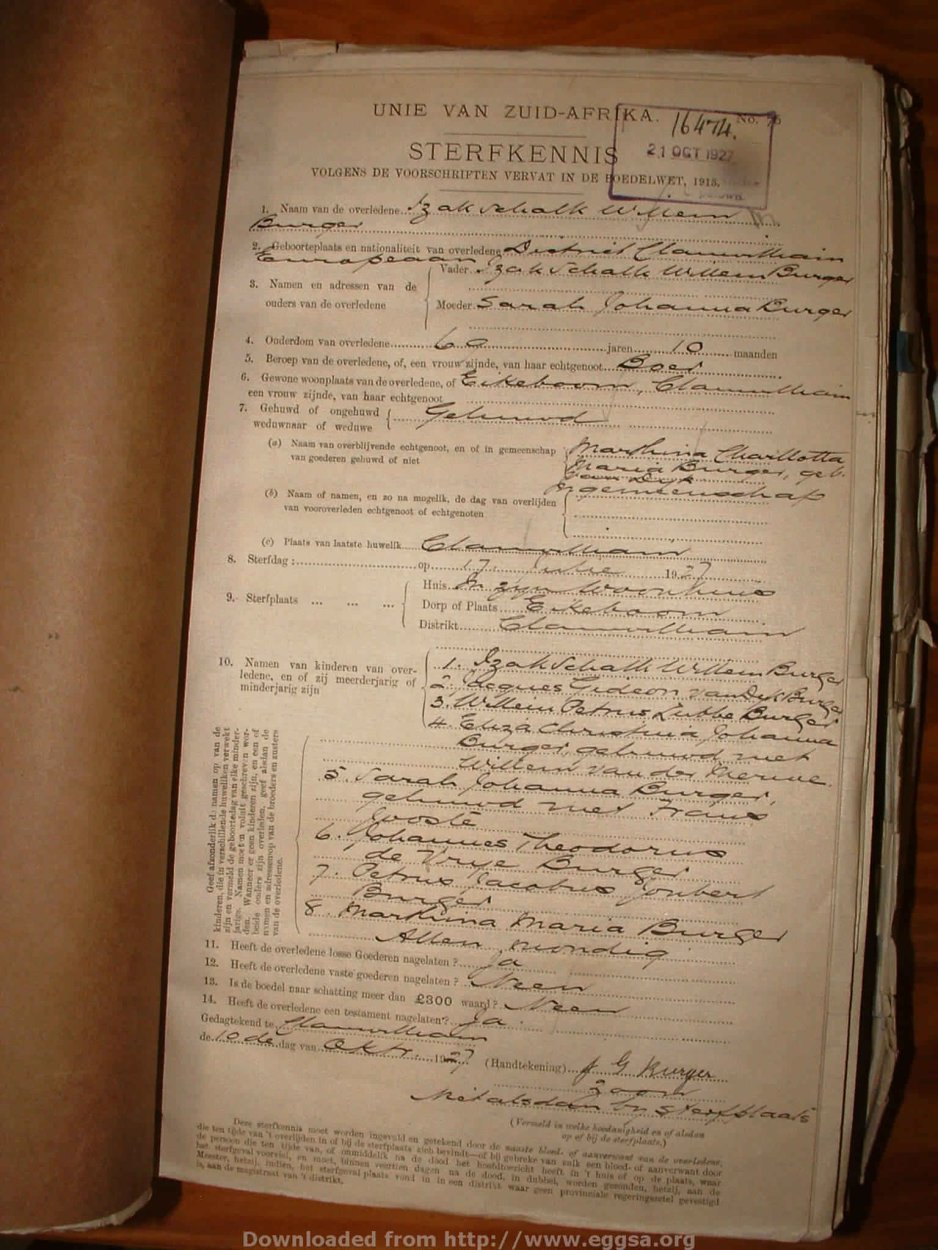 UNIE VAN ZUID-AFRIKA.
No.
16474.
21 OCT 1927
STERFKENNIS
VOLGENS DE VOORSCHRIFTEN VERVAT IN DE BOEDELWET, 1913.
1. Naam van de overledene Izak Schalk Willem
Burger
2. Geboorteplaats en nationaliteit van overledene District Clanwilliam
Europeaan
3. Namen en adressen van de ouders van de overledene
Vader Izak Schalk Willem Burger
Moeder Sarah Johanna Burger
4. Ouderdom van overledene 60 jaren 10 maanden
5. Beroep van de overledene, of, een vrouw zijnde, van haar echtgenoot Boer
6. Gewone woonplaats van de overledene, of Eikeboom, Clanwilliam
een vrouw zijnde, van haar echtgenoot
7. Gehuwd of ongehuwd Gehuwd
weduwnaar of weduwe
(a) Naam van overblijvende echtgenoot, en of in gemeenschap Marthina Charllotta
van goederen gehuwd of niet Maria Burger, geb.
van Dyk
In gemeenschap
(b) Naam of namen, en zo na mogelik, de dag van overlijden
van vooroverleden echtgenoot of echtgenoten
(c) Plaats van laatste huwelik Clanwilliam
8. Sterfdag: op 17 Julie 1927
9. Sterfplaats ... ... ...
Huis In zyn Woonhuis
Dorp of Plaats Eikeboom
Distrikt Clanwilliam
10. Namen van kinderen van over-
ledene, en of zij meerderjarig of
minderjarig zijn
1. Izak Schalk Willem Burger
2. Jacques Gideon van Dyk Burger
3. Willem Petrus Lubbe Burger
4. Eliza Christina Johanna
Burger, gehuwd met
Willem van der Merwe
5. Sarah Johanna Burger,
gehuwd met Frans
Louste
6. Johannes Theodorus
de Vrye Burger
7. Petrus Jacobus Joubert
Burger
8. Marthina Maria Burger
Allen mondig
Geef afzonderlik de namen op van de
kinderen, die in verschillende huweliken verwekt
zijn en vermeld de geboortedag van elke minder-
jarige. Namen moeten voluit geschreven wor-
den. Wanneer er geen kinderen zijn, en een of
beide ouders zijn overleden, geef alsdan de
namen en adressen op van de broeders en zusters
van de overledene.
11. Heeft de overledene losse Goederen nagelaten? Ja
12. Heeft de overledene vaste goederen nagelaten? Neen
13. Is de boedel naar schatting meer dan £300 waard? Neen
14. Heeft de overledene een testament nagelaten? Ja.
Gedagtekend te Clanwilliam
de 10de dag van Oktr. 1927
(Handtekening) J G Burger
zoon
Niet alsdan by sterfplaats
(Vermeld in welke hoedanigheid en of aldaar
op of bij de sterfplaats.)
Deze sterfkennis moet worden ingevuld en getekend door de naaste bloed- of aanverwant van de overledene,
die ten tijde van 't overlijden in of bij de sterfplaats zich bevindt—of bij gebreke van zulk een bloed- of aanverwant door
de persoon die ten tijde van, of onmiddellik na de dood het hoofdtoezicht heeft in 't huis of op de plaats, waar
het sterfgeval voorviel, en moet, binnen veertien dagen na de dood, in dubbel, worden gezonden, hetzij, aan de
Meester, hetzij, indien, het sterfgeval plaats vond in een distrikt waar geen provinciale regeringszetel gevestigd
is, aan de magistraat van 't distrikt.
Downloaded from http://www.eggsa.org